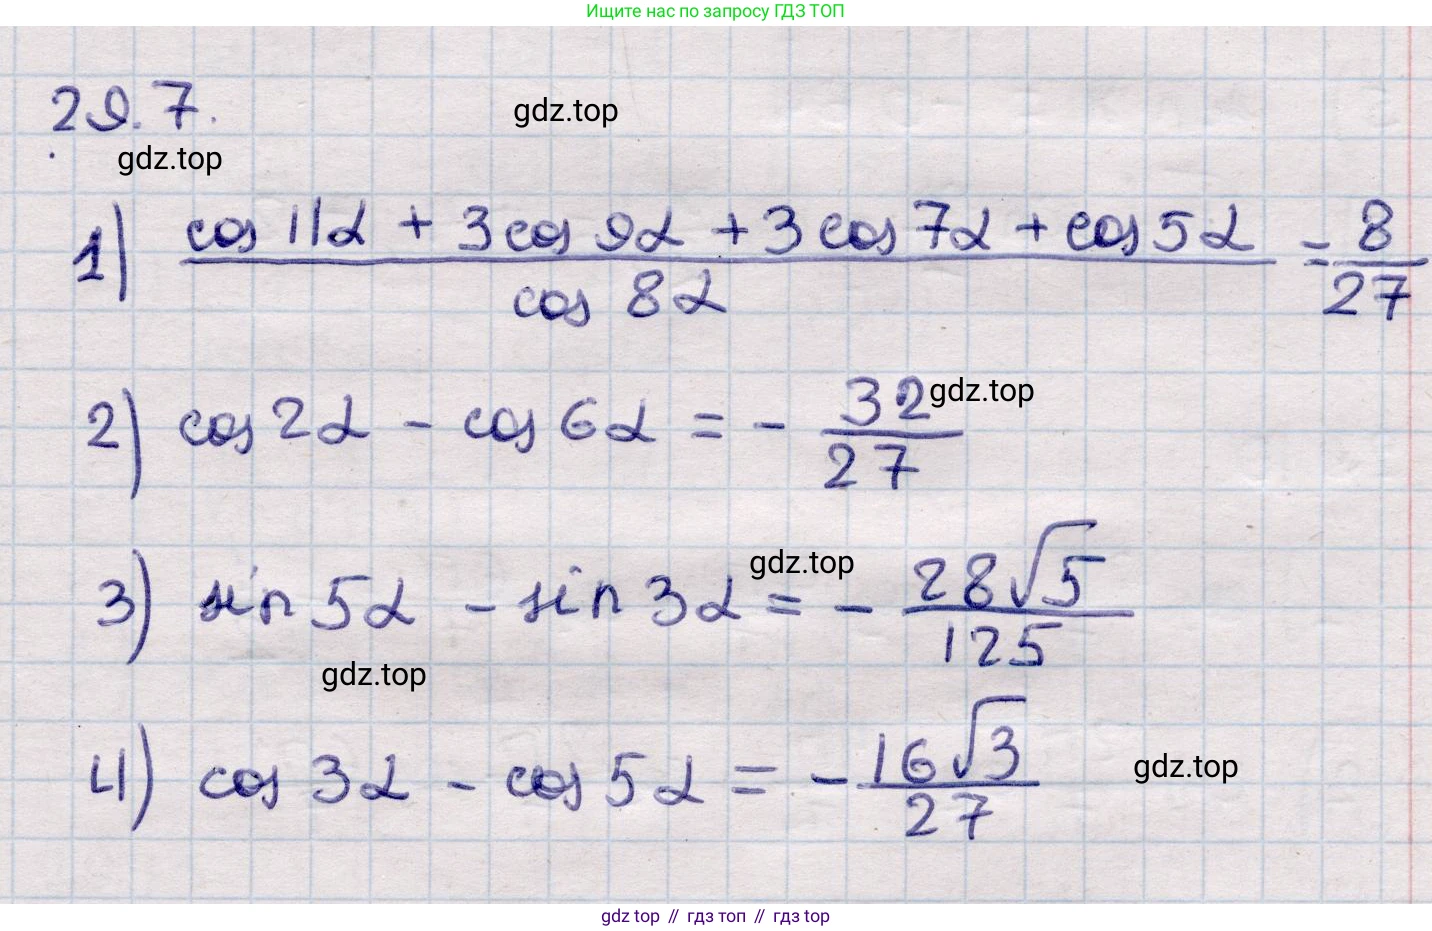 Ищите нас по запросу ГДЗ ТОП
29.7.
gdz.top
gdz.top
1) (cos 11α + 3 cos 9α + 3 cos 7α + cos 5α) / (cos 8α) = 8/27
2) cos 2α - cos 6α = - 32/27
gdz.top
3) sin 5α - sin 3α = - 28√5/125
gdz.top
gdz.top
4) cos 3α - cos 5α = - 16√3/27
gdz.top
gdz top // гдз топ // gdz top